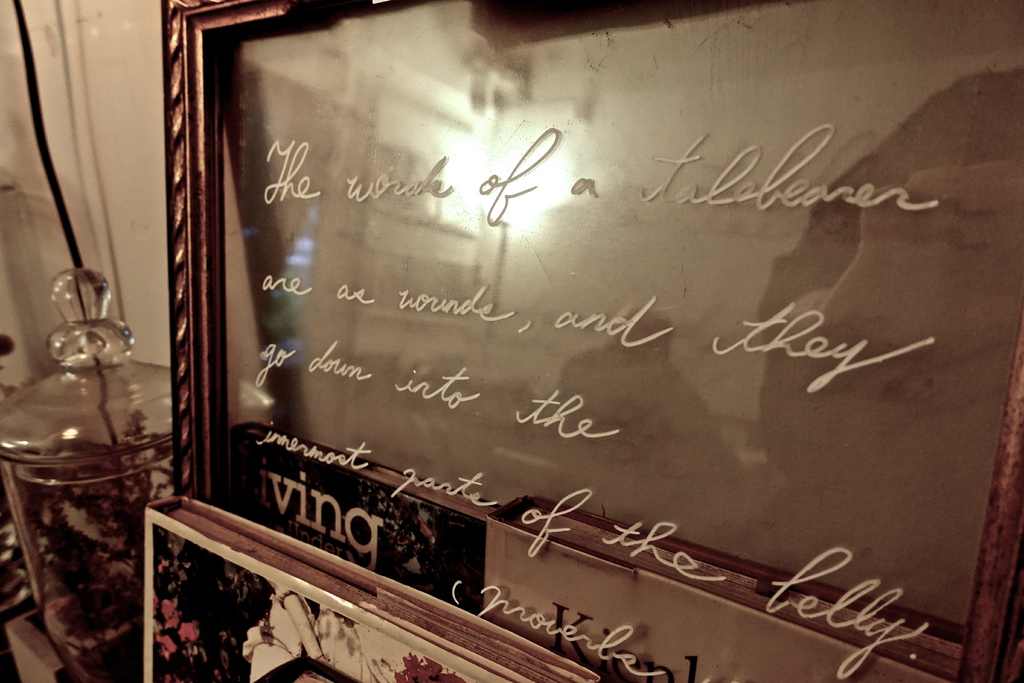 The words of a talebearer
are as wounds, and they
go down into the
innermost parts of the belly.
(proverbs
iving
under